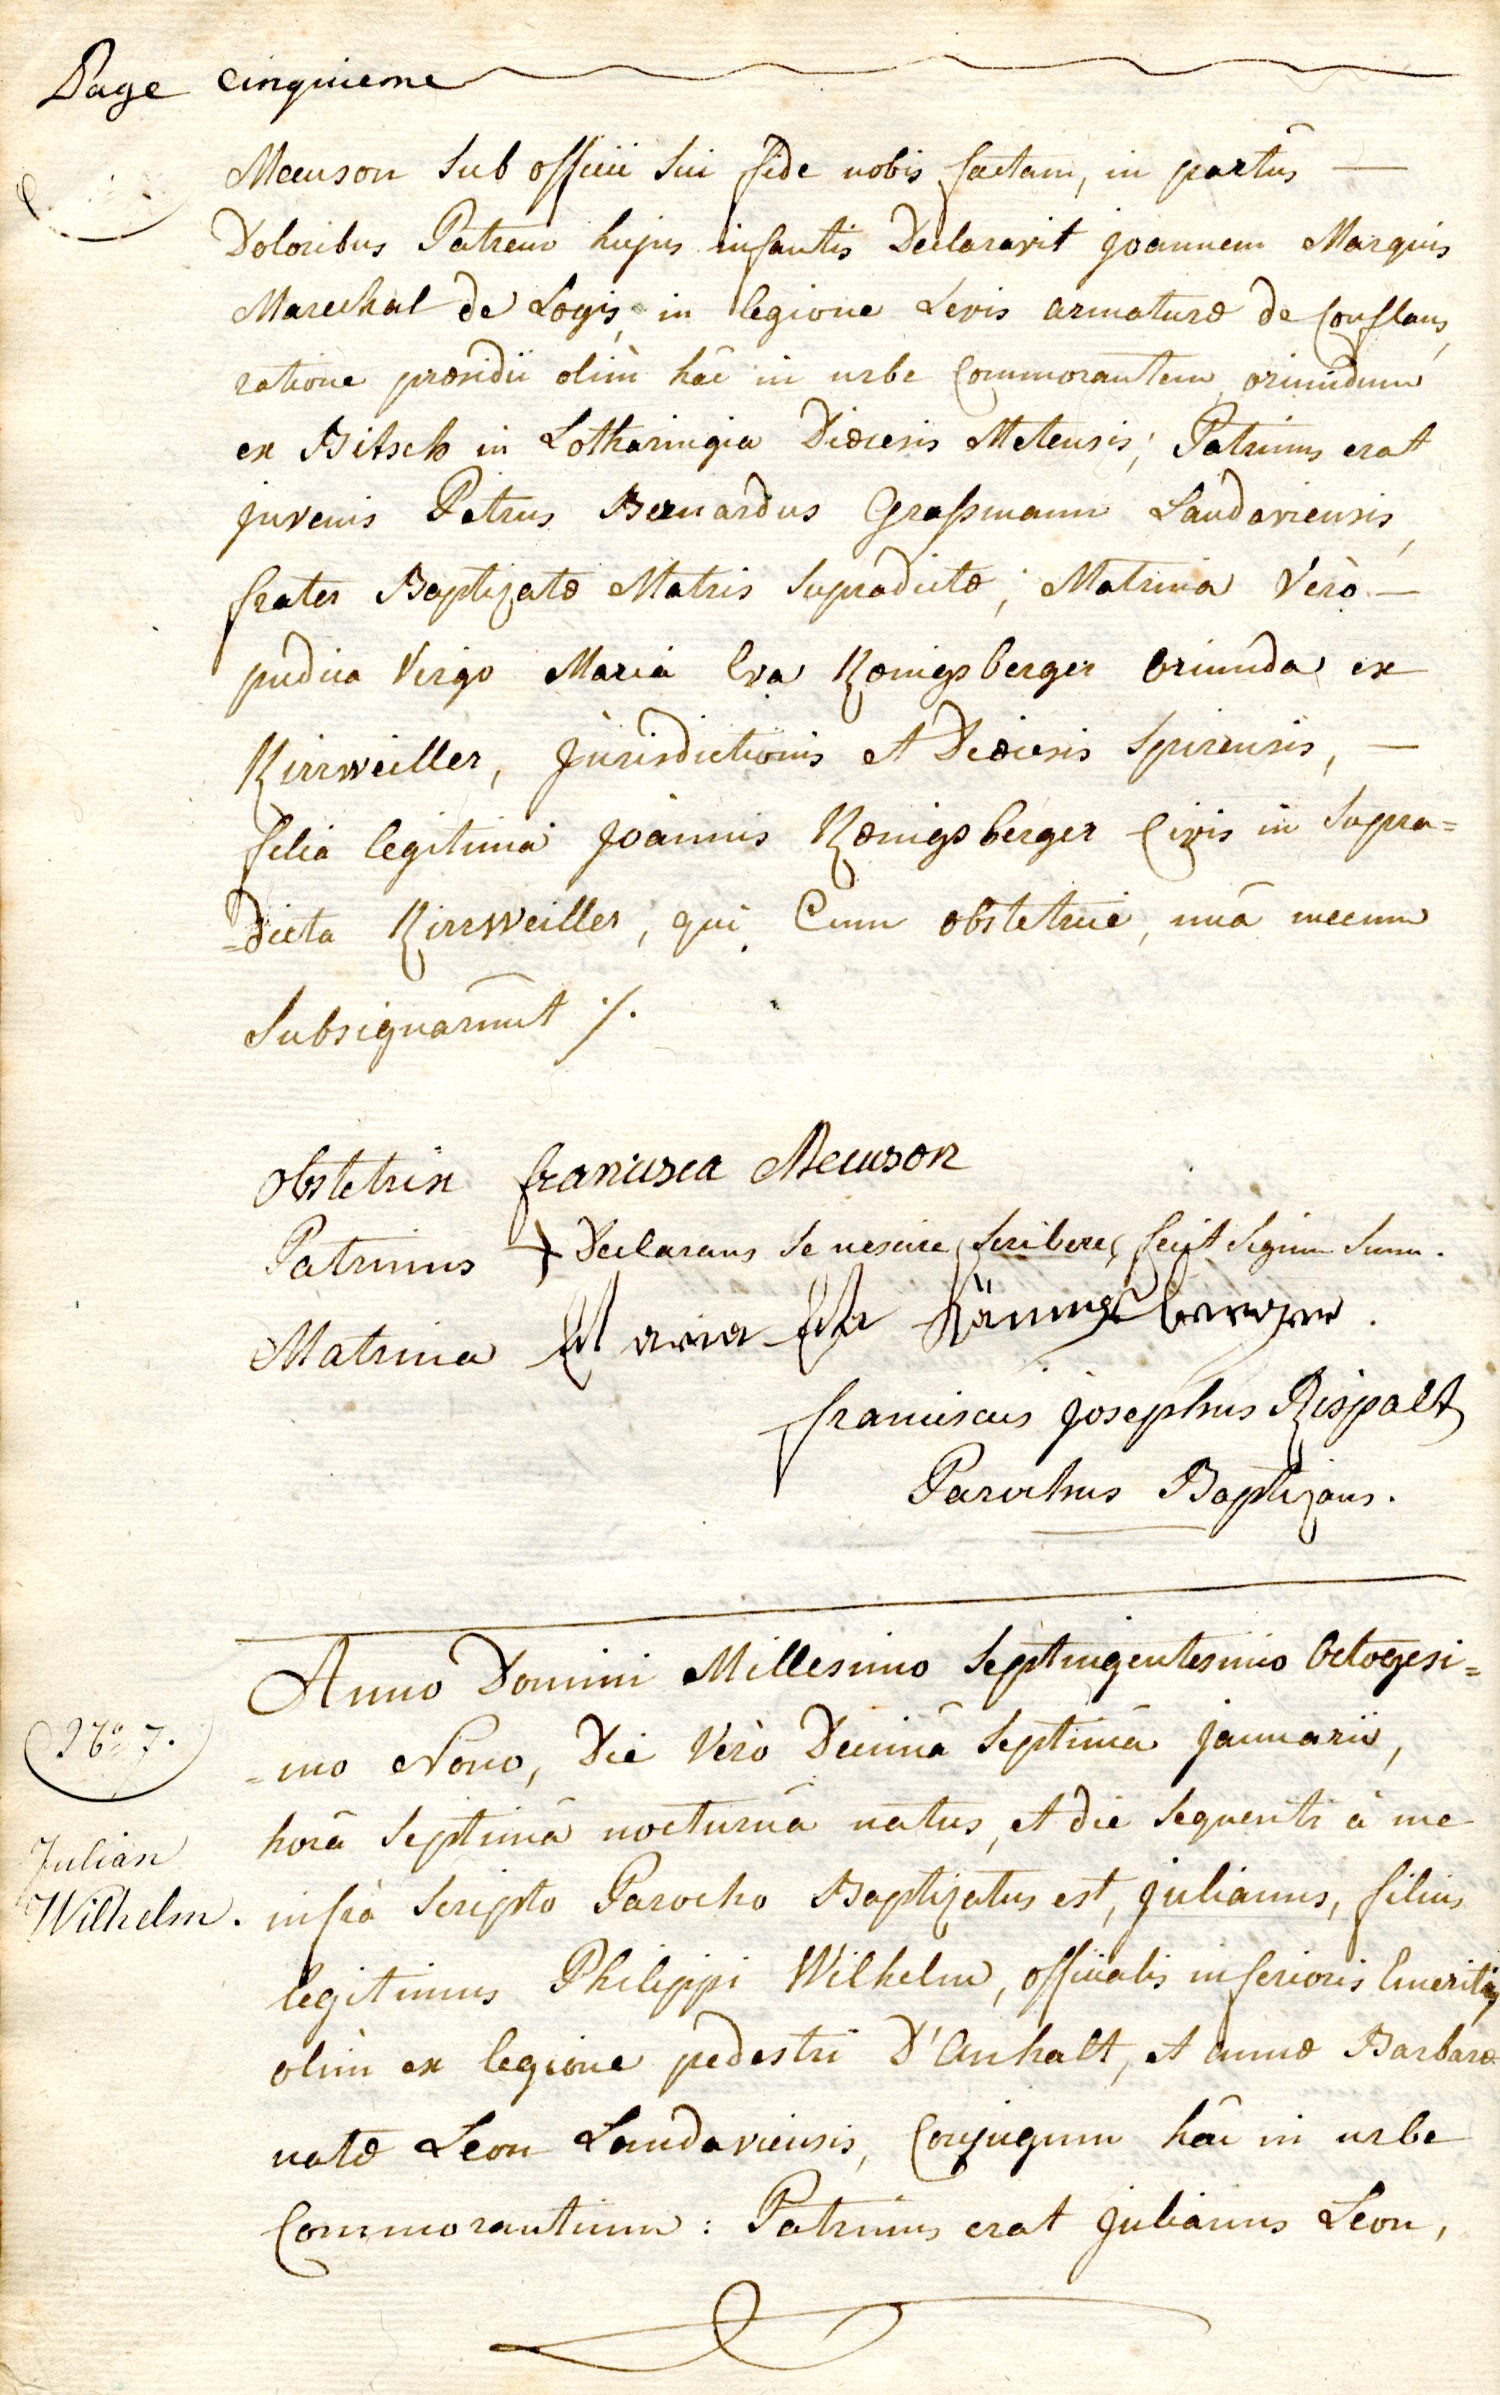 Page cinquieme
Meeuson sub officii sui fide nobis factam, in partûs —
Doloribus Patrem hujus infantis Declaravit joannem Marquis
Marechal de Logis, in legione Levis armaturæ de Conflans,
ratione præsidii olim hâc in urbe Commorantem, oriundum
ex Bitsch in Lotharingia Diœcesis Metensis; Patrinus erat
juvenis Petrus Bernardus Graßmann Landaviensis,
frater Baptizatæ Matris supradictæ; Matrina Verò —
pudica Virgo Maria Eva Kœnigsberger Oriunda ex
Kirrweiller, Jurisdictionis et Diœcesis Spirensis, —
filia legitima Joannis Kœnigsberger Civis in supra=
=dicta Kirrweiller, qui Cum obstetrice, unâ mecum
Subsignarunt ./.
Obstetrix francisca Meeuson
Patrinus + Declarans se nescire scribere, fecit signum suum.
Matrina Maria Efa Känigsberger.
franciscus josephus Rispalt
Parochus Baptizans.
Anno Domini Millesimo Septingentesimo Octogesi=
N.º 7.
=mo Nono, Die Verò Decimâ Septimâ januarii,
horâ Septimâ nocturnâ natus, et die sequenti à me
Julian
Wilhelm.
infrà scripto Parocho Baptizatus est, julianus, filius
legitimus Philippi Wilhelm, officialis inferioris Emeriti,
olim ex legione pedestri D'Anhalt, et annæ Barbaræ
natæ Leon Landaviensis, Conjugum hâc in urbe
Commorantium: Patrinus erat julianus Leon,